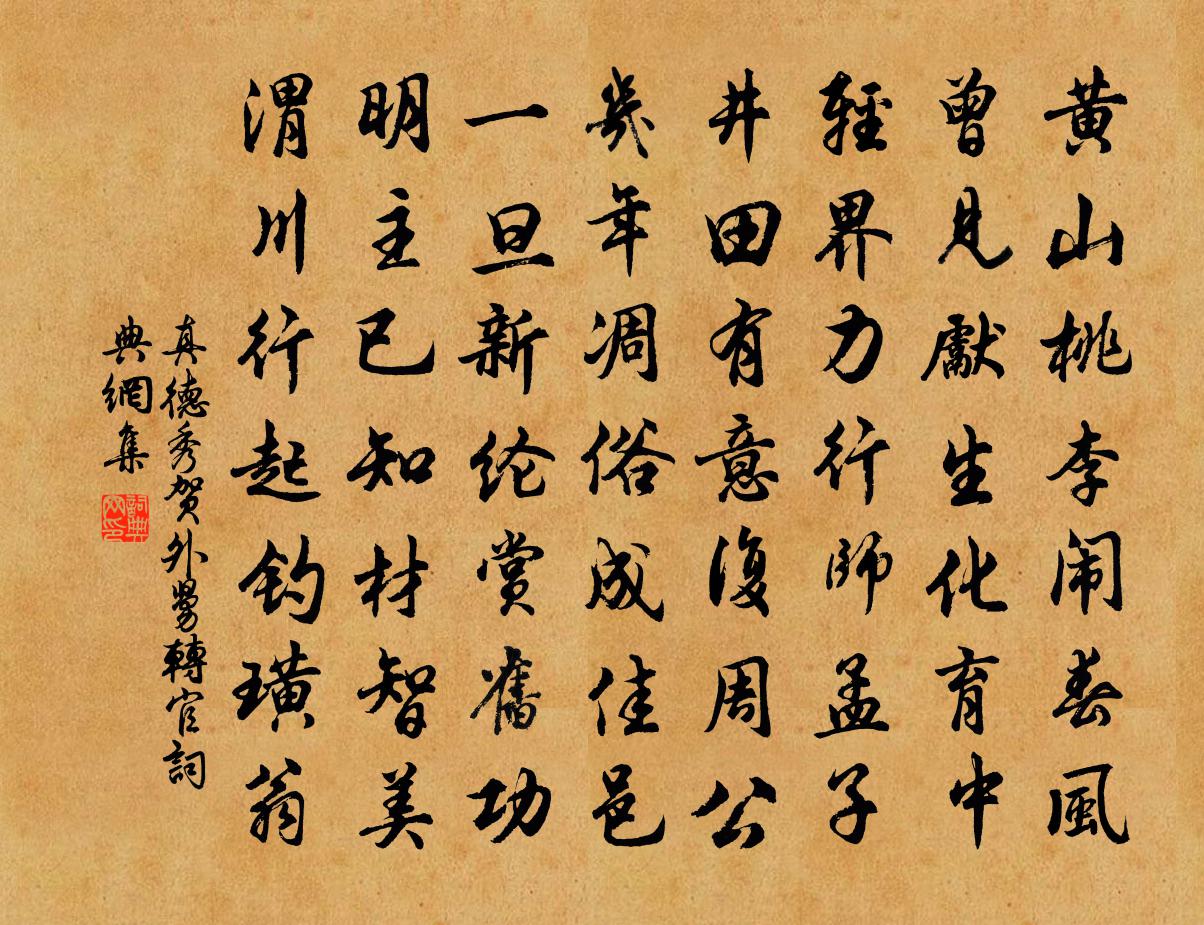 黄山桃李闹春風
曾見獻生化育中
輕界力行師孟子
井田有意復周公
幾年凋俗成佳邑
一旦新纶賞舊功
明主已知材智美
渭川行起钓璜翁
真德秀贺外舅轉官詞
典網集
詞典網印